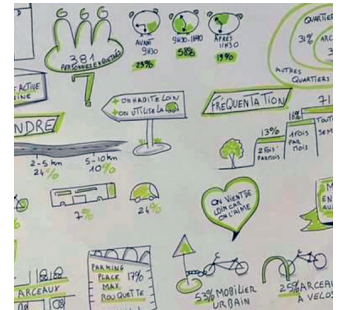 381
PERSONNES ENQUÊTÉES
AVANT
9H30
23%
9H30-11H30
58%
APRÈS
11H30
19%
QUARTIER
31%
ARC
AUTRES
QUARTIERS
ACTIVE
+ ON HABITE LOIN
+ ON UTILISE LA
FRÉQUENTATION
71
NDRE
2-5 km
24%
5-10 km
10%
13%
2 FOIS
PAR MOIS
16%
1 FOIS
PAR
MOIS
TOUT
SEM
7%
24%
ON VIENT DE
LOIN CAR
ON L'AIME
M
EN
AU
PARKING
PLACE
MAX
ROUQUETTE
17%
ARCEAUX
53% MOBILIER
URBAIN
25% ARCEAU
À VÉLOS